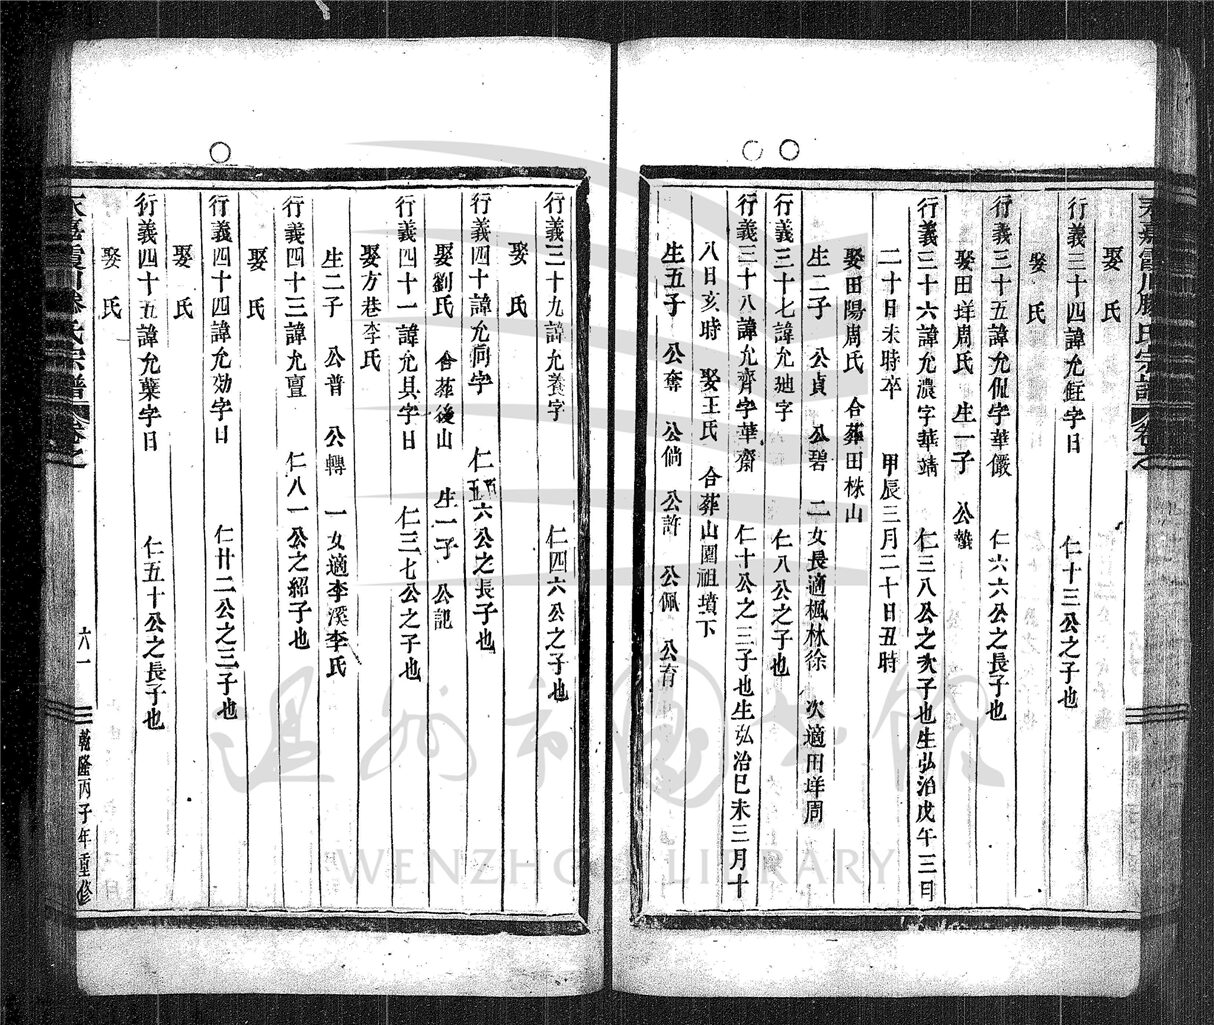 永嘉霞川滕氏宗譜 卷之
娶 氏
行義三十四諱允鉒字日 仁十三公之子也
娶 氏
行義三十五諱允侃字華儼 仁六六公之長子也
娶田垟周氏 生一子 公蟄
行義三十六諱允濃字華靖 仁三八公之次子也生弘治戊午三月
二十日未時卒 甲辰三月二十日丑時
娶田陽周氏 合葬田株山
生二子 公貞 公碧 二女長適楓林徐 次適田垟周
行義三十七諱允廸字 仁八公之子也
行義三十八諱允齊字華齋 仁十公之三子也生弘治巳未三月十
八日亥時 娶王氏 合葬山園祖墳下
生五子 公奪 公倘 公許 公佩 公育
行義三十九諱允養字 仁四六公之子也
娶 氏
行義四十諱允侗字 仁六公之長子也
娶劉氏 合葬後山 生一子 公記
行義四十一諱允具字日 仁三七公之子也
娶方巷李氏
生二子 公普 公轉 一女適李溪李氏
行義四十三諱允亶 仁八一公之紹子也
娶 氏
行義四十四諱允効字日 仁廿二公之三子也
娶 氏
行義四十五諱允葉字日 仁五十公之長子也
娶 氏
永嘉霞川滕氏宗譜 卷之 六一 乾隆丙子年重修
溫州市圖書館
WENZHOU LIBRARY